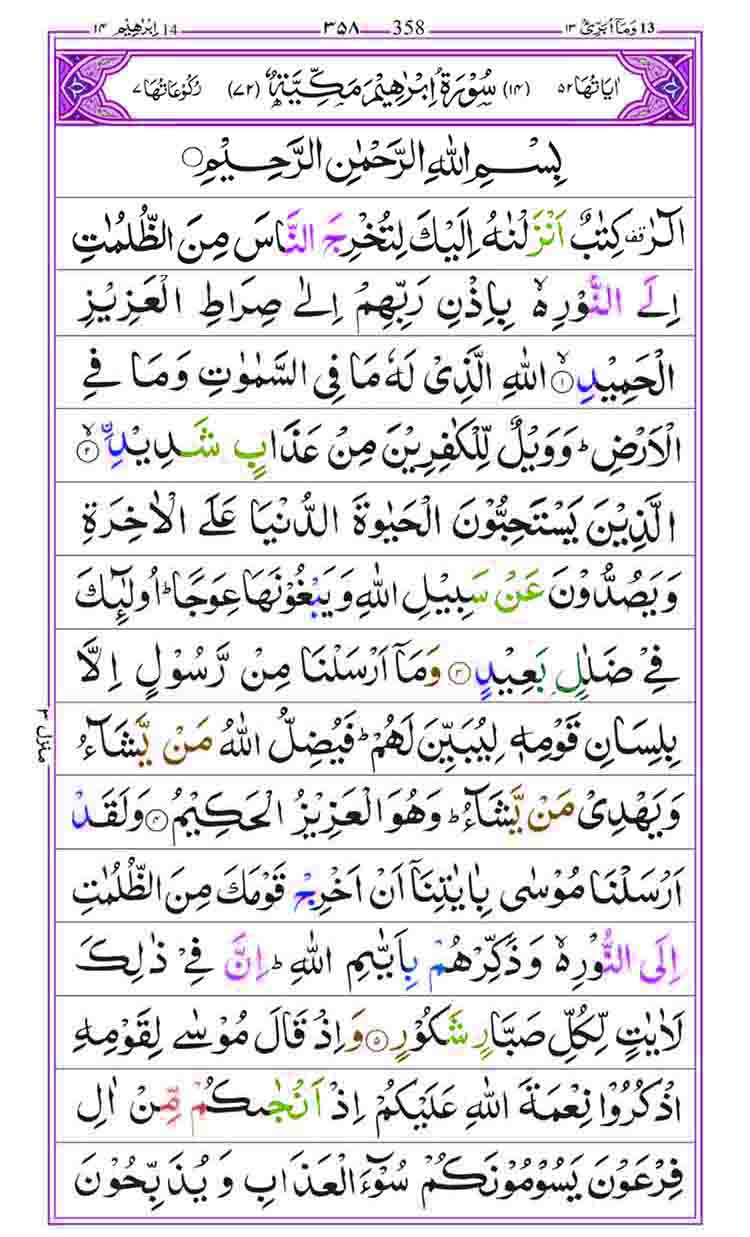 13 وَمَآ اُبَرِّئُ ١٣ 358 ٣٥٨ 14 اِبْرٰهِيْم ١٤
اٰيَاتُهَا ٥٢ (١٤) سُوْرَةُ اِبْرٰهِيْمَ مَكِّيَّةٌ (٧٢) رُكُوْعَاتُهَا ٧
بِسْمِ اللهِ الرَّحْمٰنِ الرَّحِيْمِ
الٓرٰ ۚ كِتٰبٌ اَنْزَلْنٰهُ اِلَيْكَ لِتُخْرِجَ النَّاسَ مِنَ الظُّلُمٰتِ
اِلَى النُّوْرِ ۙ۬ بِاِذْنِ رَبِّهِمْ اِلٰى صِرَاطِ الْعَزِيْزِ
الْحَمِيْدِ ۙ﴿١﴾ اللهِ الَّذِىْ لَهٗ مَا فِى السَّمٰوٰتِ وَمَا فِى
الْاَرْضِ ؕ وَوَيْلٌ لِّلْكٰفِرِيْنَ مِنْ عَذَابٍ شَدِيْدِ ۙ﴿٢﴾
الَّذِيْنَ يَسْتَحِبُّوْنَ الْحَيٰوةَ الدُّنْيَا عَلَى الْاٰخِرَةِ
وَيَصُدُّوْنَ عَنْ سَبِيْلِ اللهِ وَيَبْغُوْنَهَا عِوَجًا ؕ اُولٰٓئِكَ
فِىْ ضَلٰلٍ بَعِيْدٍ ﴿٣﴾ وَمَآ اَرْسَلْنَا مِنْ رَّسُوْلٍ اِلَّا
بِلِسَانِ قَوْمِهٖ لِيُبَيِّنَ لَهُمْ ؕ فَيُضِلُّ اللهُ مَنْ يَّشَآءُ
وَيَهْدِىْ مَنْ يَّشَآءُ ؕ وَهُوَ الْعَزِيْزُ الْحَكِيْمُ ﴿٤﴾ وَلَقَدْ
اَرْسَلْنَا مُوْسٰى بِاٰيٰتِنَآ اَنْ اَخْرِجْ قَوْمَكَ مِنَ الظُّلُمٰتِ
اِلَى النُّوْرِ ۙ۬ وَذَكِّرْهُمْ بِاَيّٰىمِ اللهِ ؕ اِنَّ فِىْ ذٰلِكَ
لَاٰيٰتٍ لِّكُلِّ صَبَّارٍ شَكُوْرٍ ﴿٥﴾ وَاِذْ قَالَ مُوْسٰى لِقَوْمِهِ
اذْكُرُوْا نِعْمَةَ اللهِ عَلَيْكُمْ اِذْ اَنْجٰىكُمْ مِّنْ اٰلِ
فِرْعَوْنَ يَسُوْمُوْنَكُمْ سُوْٓءَ الْعَذَابِ وَيُذَبِّحُوْنَ
منزل ٣